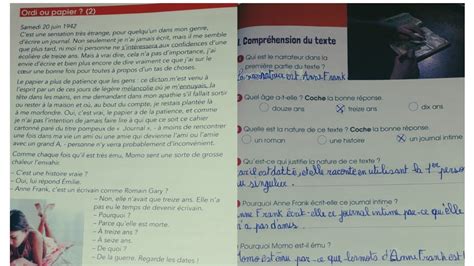 Ordi ou papier ? (2)
Samedi 20 juin 1942
C'est une sensation très étrange, pour quelqu'un dans mon genre,
d'écrire un journal. Non seulement je n'ai jamais écrit, mais il me semble
que plus tard, ni moi ni personne ne s'intéressera aux confidences d'une
écolière de treize ans. Mais à vrai dire, cela n'a pas d'importance, j'ai
envie d'écrire et bien plus encore de dire vraiment ce que j'ai sur le
cœur une bonne fois pour toutes à propos d'un tas de choses.
Le papier a plus de patience que les gens : ce dicton m'est venu à
l'esprit par un de ces jours de légère mélancolie où je m'ennuyais, la
tête dans les mains, en me demandant dans mon apathie s'il fallait sortir
ou rester à la maison et où, au bout du compte, je restais plantée là
à me morfondre. Oui, c'est vrai, le papier a de la patience, et comme
je n'ai pas l'intention de jamais faire lire à qui que ce soit ce cahier
cartonné paré du titre pompeux de « Journal », à moins de rencontrer
une fois dans ma vie un ami ou une amie qui devienne l'ami ou l'amie
avec un grand A, personne n'y verra probablement d'inconvénient.
Comme chaque fois qu'il est très ému, Momo sent une sorte de grosse
chaleur l'envahir.
C'est une histoire vraie ?
– Oui, lui répond Émilie.
– Anne Frank, c'est un écrivain comme Romain Gary ?
– Non, elle n'avait que treize ans. Elle n'a
pas eu le temps de devenir écrivain.
– Pourquoi ?
– Parce qu'elle est morte.
– À treize ans ?
– À seize ans.
– De quoi ?
– De la guerre. Regarde les dates !
Compréhension du texte
Qui est le narrateur dans la
première partie du texte ?
La narratrice est Anne Frank
Quel âge a-t-elle ? Coche la bonne réponse.
douze ans
treize ans
dix ans
Quelle est la nature de ce texte ? Coche la bonne réponse.
un roman
une histoire
un journal intime
Qu'est-ce qui justifie la nature de ce texte ?
est datté, elle raconte en utilisant la 1ère perso
du singulier.
Pourquoi Anne Frank écrit-elle ce journal intime ?
Anne Frank écrit ce journal intime par-ce qu'elle
n'a pas d'amis.
Pourquoi Momo est-il ému ?
Momo est ému par-ce que les mots d'Anne Frank est